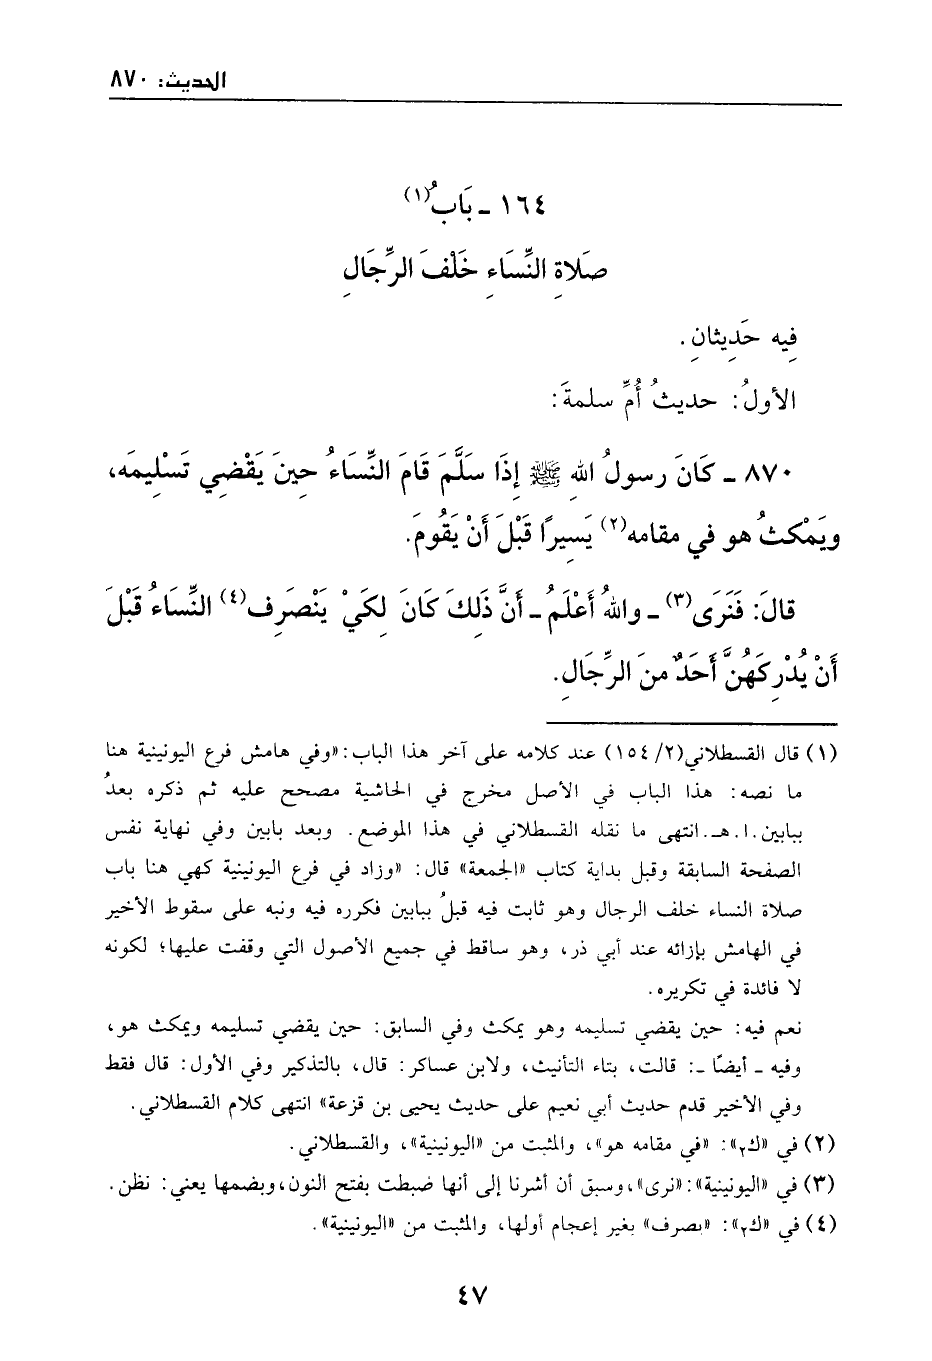 الحديث: ٨٧٠
١٦٤ ـ بَابُ(١)
صَلاةِ النِّسَاءِ خَلْفَ الرِّجَالِ
فِيه حَدِيثانِ.
الأولُ: حديثُ أُمِّ سلمةَ:
٨٧٠ ـ كَانَ رسولُ اللهِ ﷺ إِذَا سَلَّمَ قَامَ النِّسَاءُ حِينَ يَقْضِي تَسْلِيمَه،
ويَمْكثُ هو في مقامه(٢) يَسِيرًا قَبْلَ أَنْ يَقُومَ.
قالَ: فَنَرَى(٣) ـ واللهُ أَعْلَمُ ـ أَنَّ ذَلِكَ كَانَ لِكَيْ يَنْصَرِف(٤) النِّسَاءُ قَبْلَ
أَنْ يُدْرِكَهُنَّ أَحَدٌ منَ الرِّجَالِ.
(١) قال القسطلاني(٢/ ١٥٤) عند كلامه على آخر هذا الباب: «وفي هامش فرع اليونينية هنا
ما نصه: هذا الباب في الأصل مخرج في الحاشية مصحح عليه ثم ذكره بعدُ
ببابين.ا.هـ.انتهى ما نقله القسطلاني في هذا الموضع. وبعد بابين وفي نهاية نفس
الصفحة السابقة وقبل بداية كتاب «الجمعة» قال: «وزاد في فرع اليونينية كهي هنا باب
صلاة النساء خلف الرجال وهو ثابت فيه قبلُ ببابين فكرره فيه ونبه على سقوط الأخير
في الهامش بإزائه عند أبي ذر، وهو ساقط في جميع الأصول التي وقفت عليها؛ لكونه
لا فائدة في تكريره.
نعم فيه: حين يقضي تسليمه وهو يمكث وفي السابق: حين يقضي تسليمه ويمكث هو،
وفيه ـ أيضًا ـ: قالت، بتاء التأنيث، ولابن عساكر: قال، بالتذكير وفي الأول: قال فقط
وفي الأخير قدم حديث أبي نعيم على حديث يحيى بن قزعة» انتهى كلام القسطلاني.
(٢) في «ك٢»: «في مقامه هو»، والمثبت من «اليونينية»، والقسطلاني.
(٣) في «اليونينية»:«نرى»،وسبق أن أشرنا إلى أنها ضبطت بفتح النون،وبضمها يعني: نظن.
(٤) في «ك٢»: «ىصرف» بغير إعجام أولها، والمثبت من «اليونينية».
٤٧